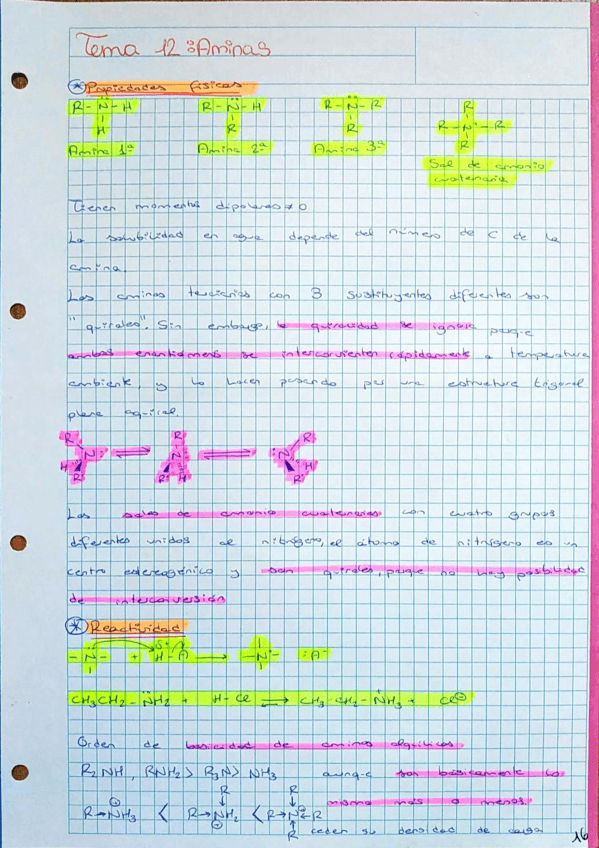 Tema 12: Aminas
* Propiedades físicas
R-N̈-H R-N̈-H R-N̈-R R
H R R R-N⁺-R
R
Amina 1ª Amina 2ª Amina 3ª Sal de amonio
cuaternaria
Tienen momentos dipolares ≠ 0
La solubilidad en agua depende del número de C de la
amina.
Las aminas terciarias con 3 sustituyentes diferentes son
"quirales". Sin embargo, la quiralidad se ignora porque
ambos enantiómeros se interconvierten rápidamente a temperatura
ambiente, y lo hacen pasando por una estructura trigonal
plana aquiral.
R R R
N: ⇌ N ⇌ :N
H R' R' H H R'
Las sales de amonio cuaternarias con cuatro grupos
diferentes unidos al nitrógeno, el átomo de nitrógeno es un
centro estereogénico y son quirales, porque no hay posibilidad
de interconversión
* Reactividad
-N̈- + H-A → -N⁺- :A⁻
CH₃CH₂-N̈H₂ + H-Cl ⇌ CH₃-CH₂-N⁺H₃ + Cl⊖
Orden de basicidad de aminas alquílicas
R₂NH, RNH₂ > R₃N > NH₃ aunque son básicamente lo
mismo más o menos.
R R
R→NH₃ < R→NH₂ < R→N←R
R
ceden su densidad de carga
16